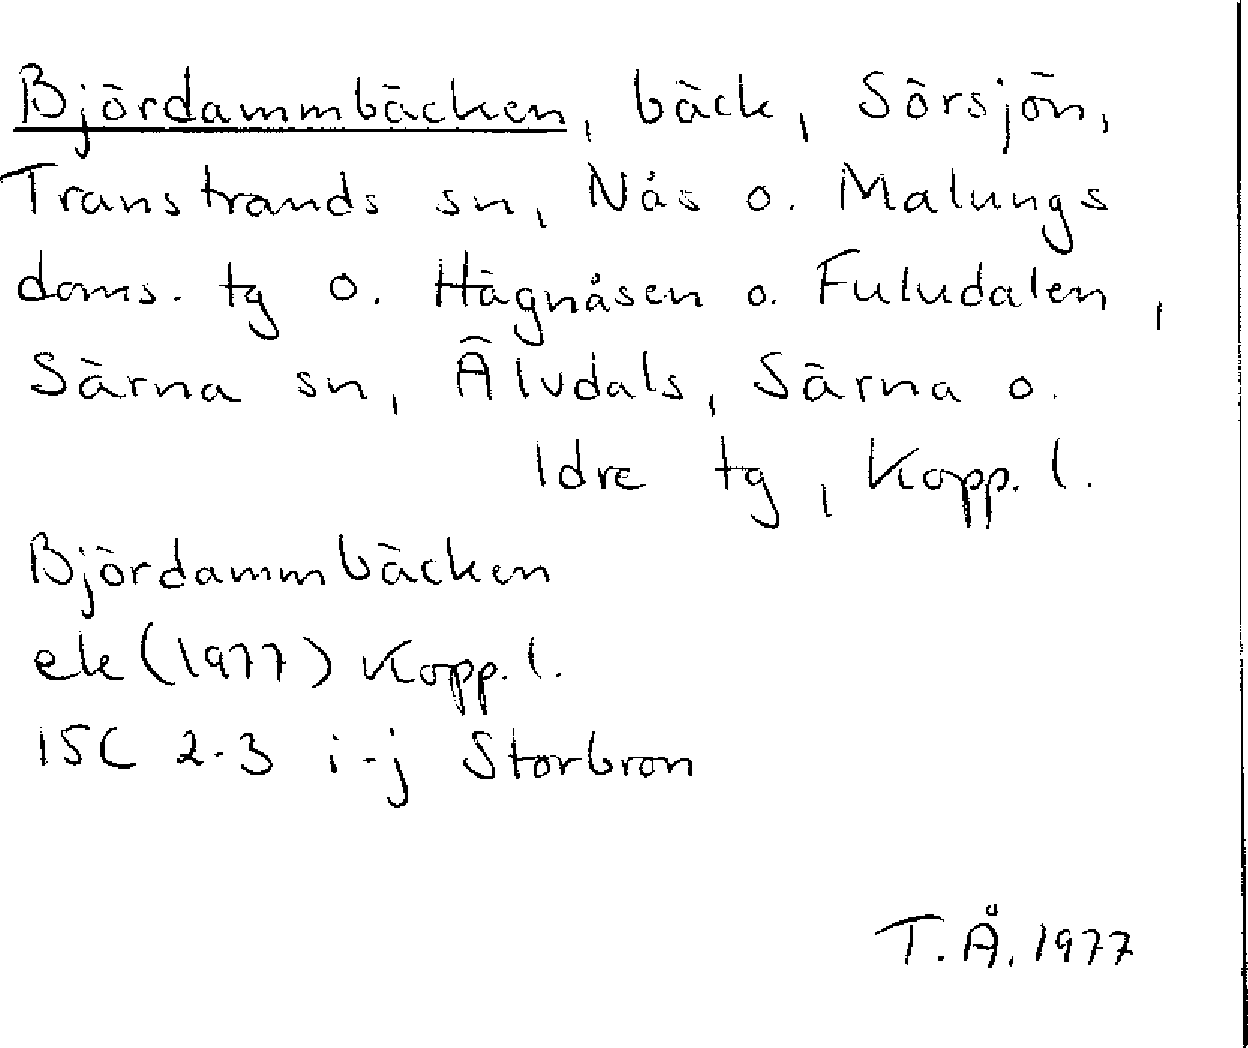 Björdammbäcken, bäck, Sörsjön,
Transtrands sn, Nås o. Malungs
doms. tg o. Hägnåsen o. Fuludalen,
Särna sn, Älvdals, Särna o.
Idre tg, Kopp. l.
Björdammbäcken
ek (1977) Kopp. l.
15C 2-3 i-j Storbron
T.Å. 1977